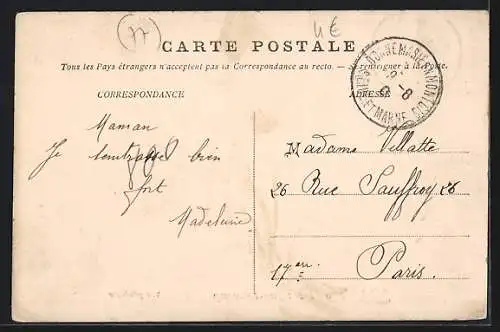 4€
CARTE POSTALE
Tous les Pays étrangers n'acceptent pas la Correspondance au recto. — Se renseigner à la Poste.
CORRESPONDANCE
ADRESSE
Maman
Je t'embrasse bien
fort
Madeleine
Madame Villatte
26 Rue Sauffroy 26
17ème
Paris.